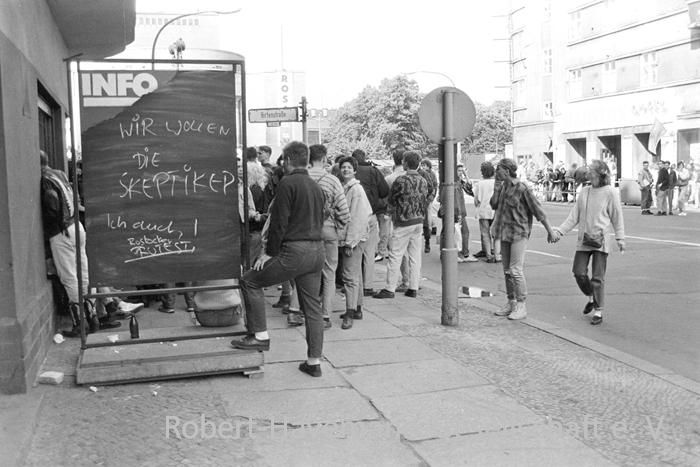 INFO
WIR WOLLEN
DIE
SKEPTIKER
Ich auch, !
Rostocker
PROTEST
Hirtenstraße
ROS
Robert-Havemann-Gesellschaft e. V.